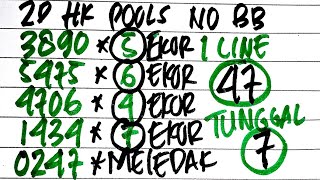 2D HK POOLS NO BB
3890 * 5 EKOR 1 LINE
5475 * 6 EKOR 47
4706 * 4 EKOR
1434 * 7 EKOR TUNGGAL
0247 * MELEDAK 7